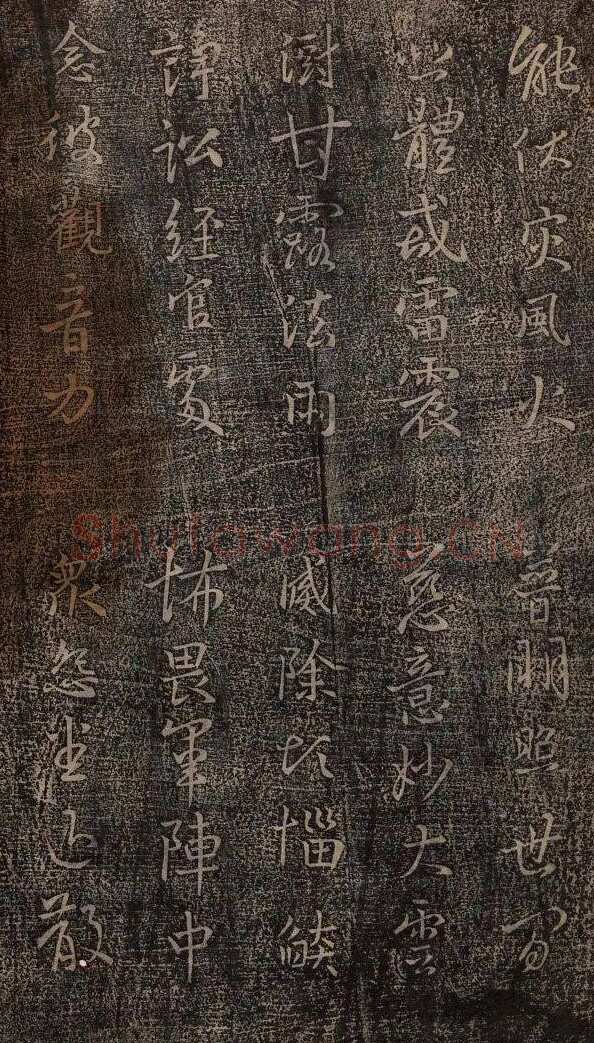 能伏灾風火 普明照世間
悲體戒雷震 慈意妙大雲
澍甘露法雨 滅除煩惱燄
諍訟經官處 怖畏軍陣中
念彼觀音力 衆怨悉退散
Shufawang.CN